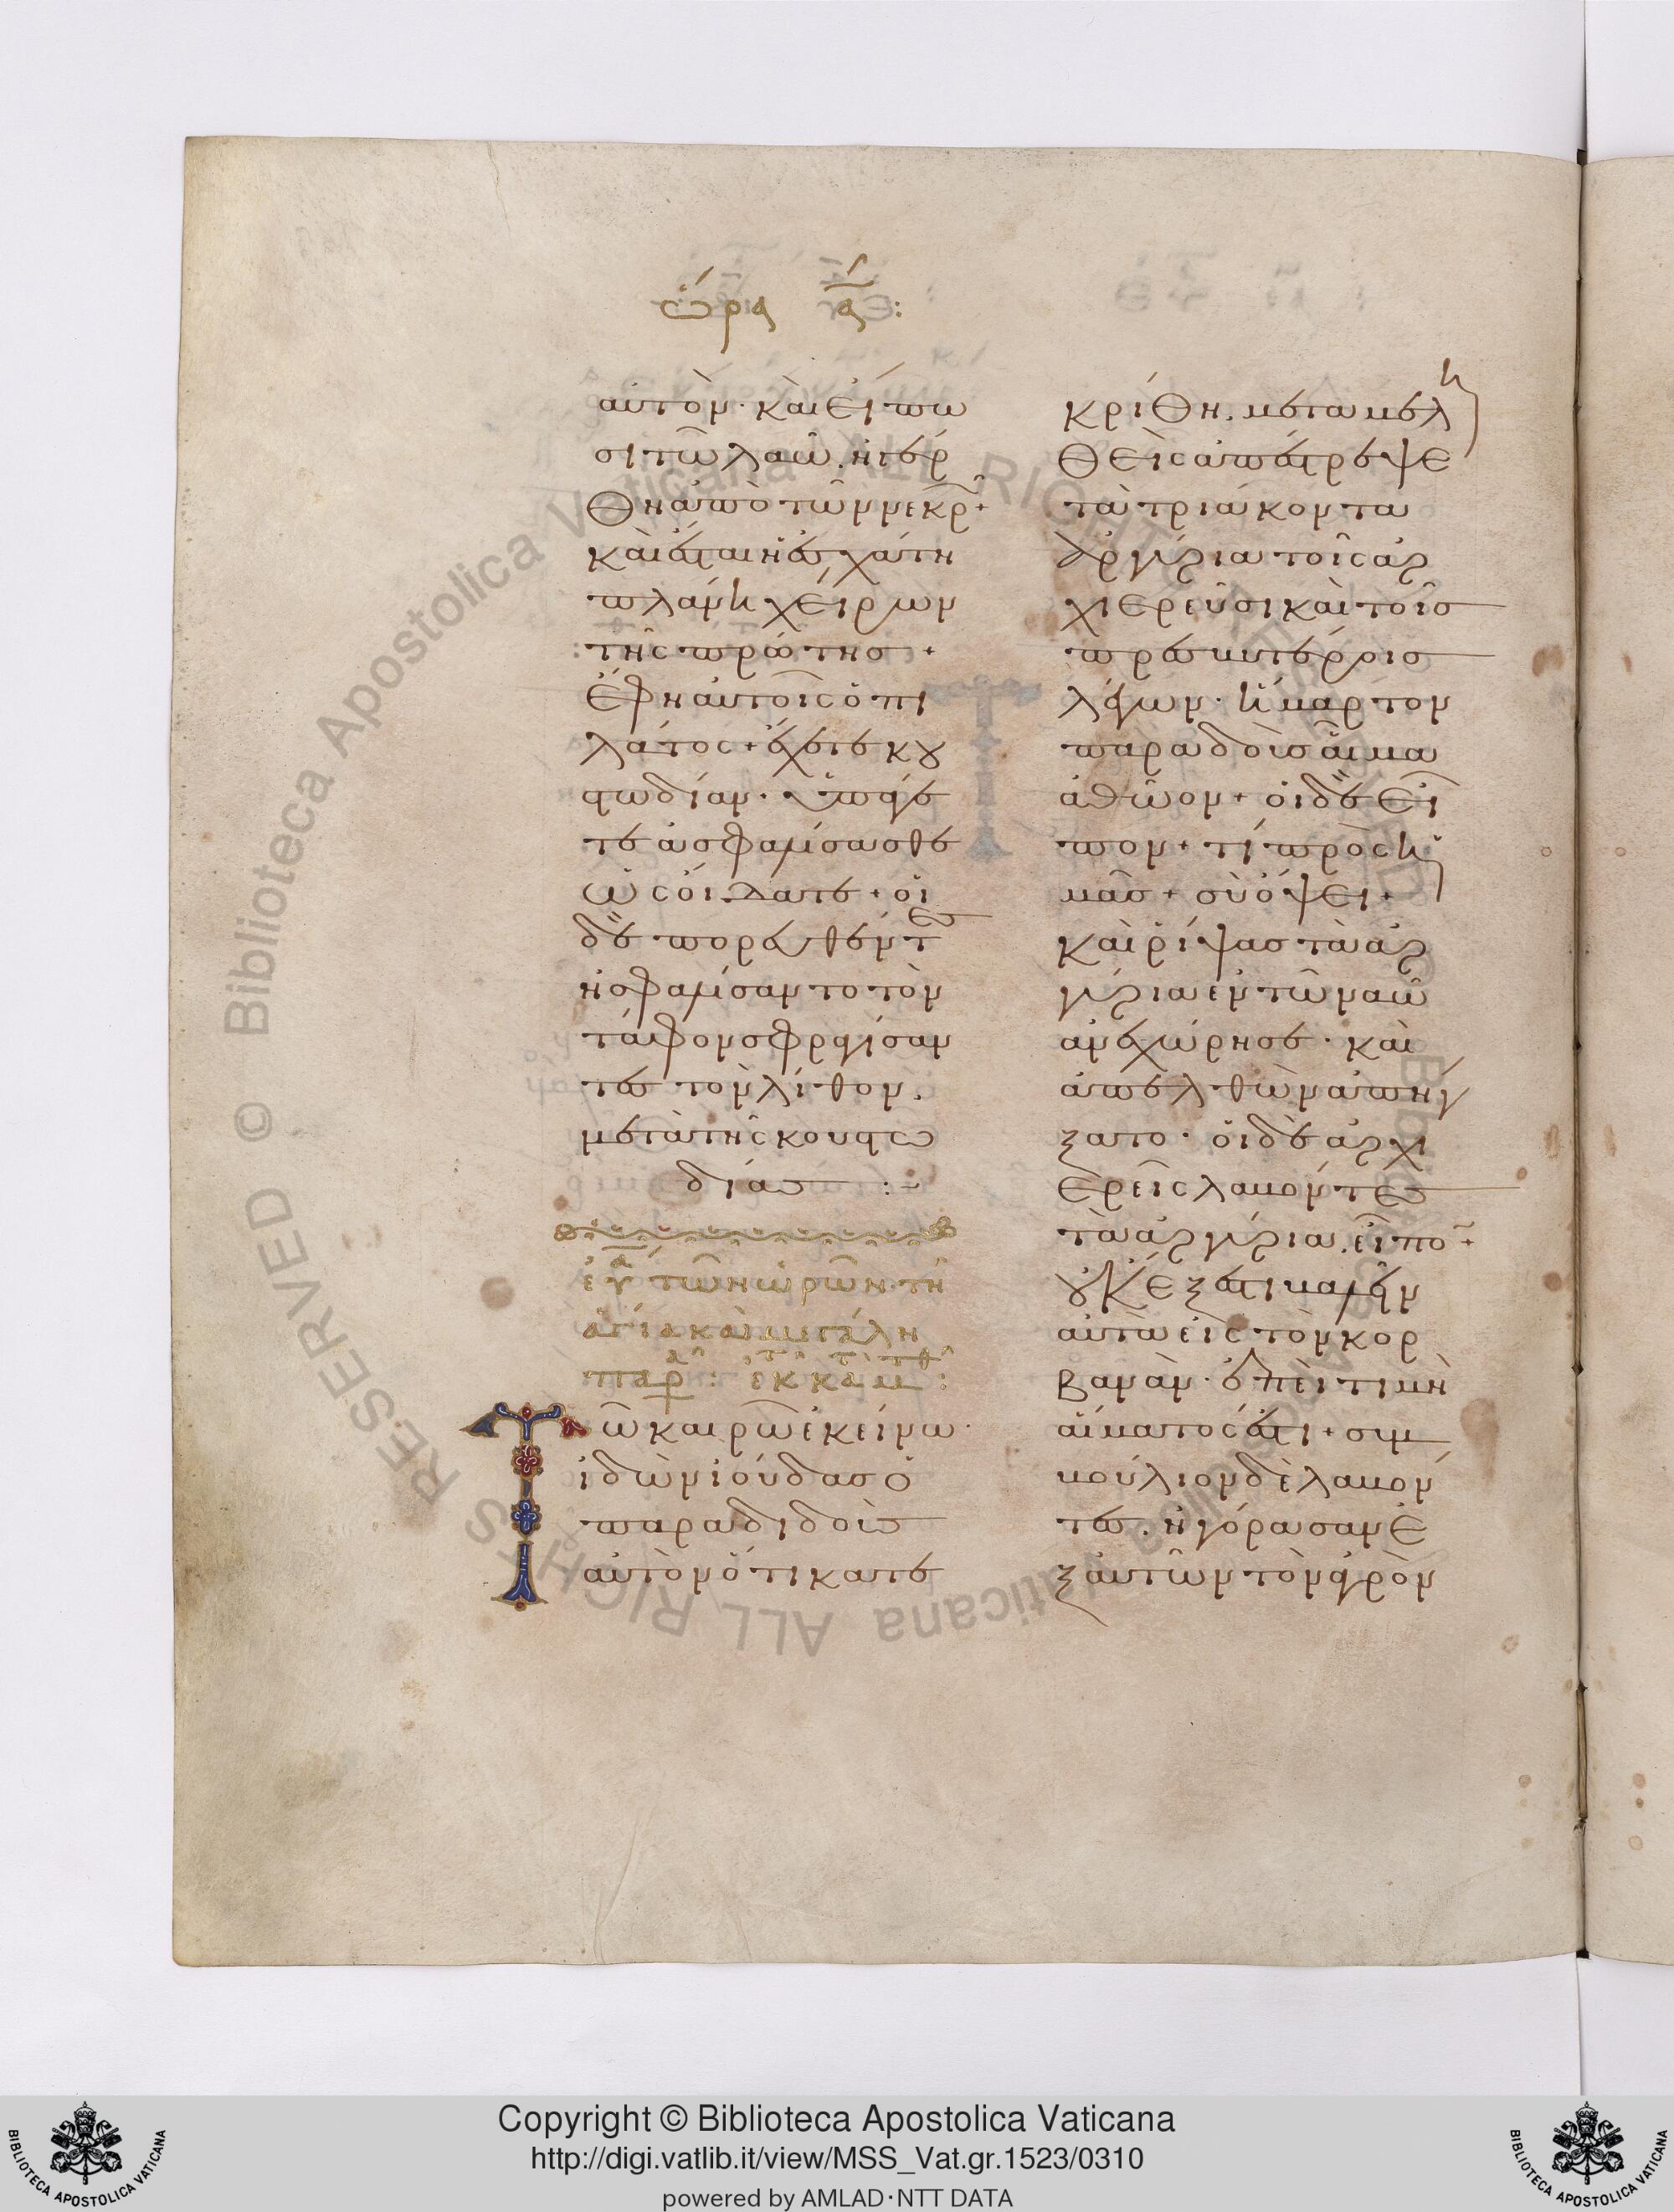 ὥρα α̅:
αὐτὸν· καὶ εἴπω
σι τῶ λαῶ. ἠγέρ
θη ἀπὸ τῶν νεκρ῀+
καὶ ἔσται ἡ ἐσχάτη
πλάνη χείρων
τῆς πρώτης+
ἔφη αὐτοῖς ὁ πι
λάτος+ ἔχετε κου
στωδίαν. ὑπάγε
τε ἀσφαλίσασθε
ὡς οἴδατε+ οἱ
δὲ πορευθέντες
ἠσφαλίσαντο τὸν
τάφον σφραγίσαν
τες τὸν λίθον.
μετὰ τῆς κουστω
δίας :-
εὐα τῶν ὡρῶν τῆ
ἁγία καὶ μεγάλη
παρ: ἐκ κατ μτθ:
Τῶ καιρῶ ἐκείνω·
ἰδὼν ἰούδας ὁ
παραδιδοὺς
αὐτὸν ὅτι κατε
κρίθη. μεταμελη
θεὶς ἀπέστρεψε
τὰ τριάκοντα
ἀργύρια τοῖς ἀρ
χιερεῦσι καὶ τοῖς
πρεσβυτέροις
λέγων· ἥμαρτον
παραδοὺς αἷμα
ἀθῶον+ οἱ δὲ εἶ
πον+ τί πρὸς ἡ
μᾶς+ σὺ ὄψει+
καὶ ῥίψας τὰ ἀρ
γύρια ἐν τῶ ναῶ
ἀνεχώρησε· καὶ
ἀπελθὼν ἀπήγ
ξατο· οἱ δὲ ἀρχι
ερεῖς λαβόντες
τὰ ἀργύρια. εἶπο῀+
οὐκ ἔξεστι βαλεῖν
αὐτὰ εἰς τὸν κορ
βανάν· ἐπεὶ τιμὴ
αἵματός ἐστι+ συμ
βούλιον δὲ λαβόν
τες. ἠγόρασαν ἐ
ξ αὐτῶν τὸν ἀγρὸν
Copyright © Biblioteca Apostolica Vaticana
http://digi.vatlib.it/view/MSS_Vat.gr.1523/0310
powered by AMLAD·NTT DATA
BIBLIOTECA APOSTOLICA VATICANA
BIBLIOTECA APOSTOLICA VATICANA
© Biblioteca Apostolica Vaticana ALL RIGHTS RESERVED
© Biblioteca Apostolica Vaticana ALL RIGHTS RESERVED